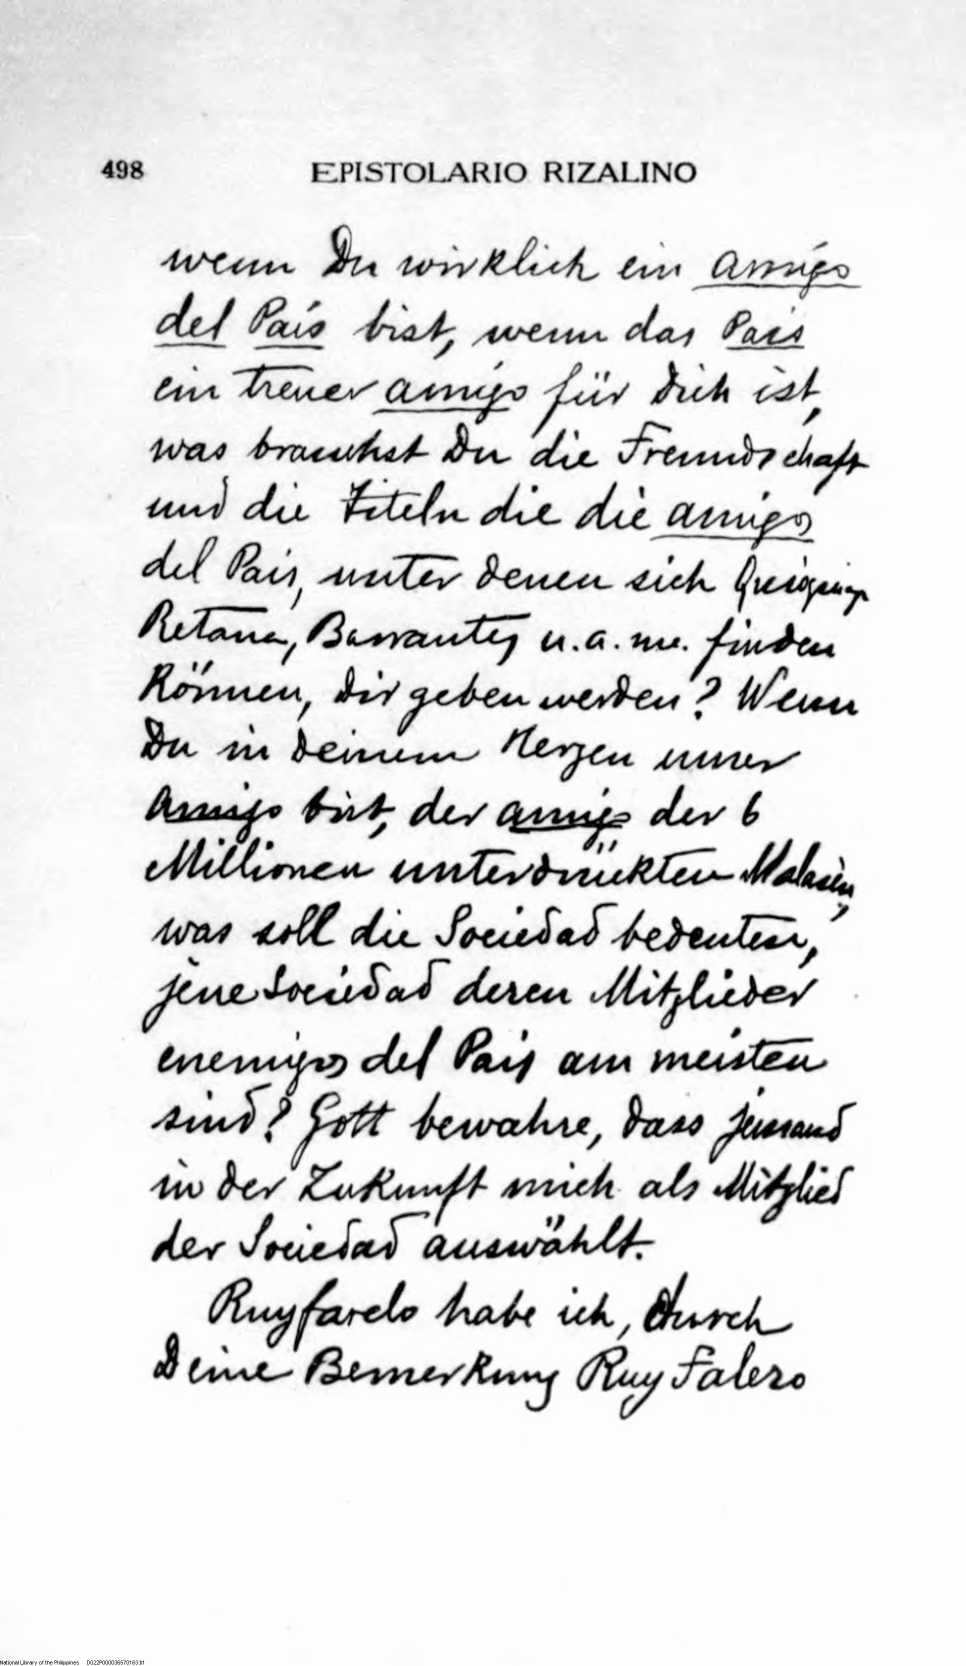 498 EPISTOLARIO RIZALINO
wenn Du wirklich ein amigo
del País bist, wenn das Pais
ein treuer amigo für Dich ist,
was brauchst Du die Freundschaft
und die Titeln die die amigos
del Pais, unter denen sich Quioquiap
Retana, Barrantes u. a. m. finden
können, Dir geben werden? Wenn
Du in Deinem Herzen unser
Amigo bist, der amigo der 6
Millionen unterdrückten Malaien,
was soll die Sociedad bedeuten,
jene Sociedad deren Mitglieder
enemigos del Pais am meisten
sind? Gott bewahre, dass jemand
in der Zukunft mich als Mitglied
der Sociedad auswählt.
Ruyfarelo habe ich, durch
Deine Bemerkung Ruy Falero
National Library of the Philippines